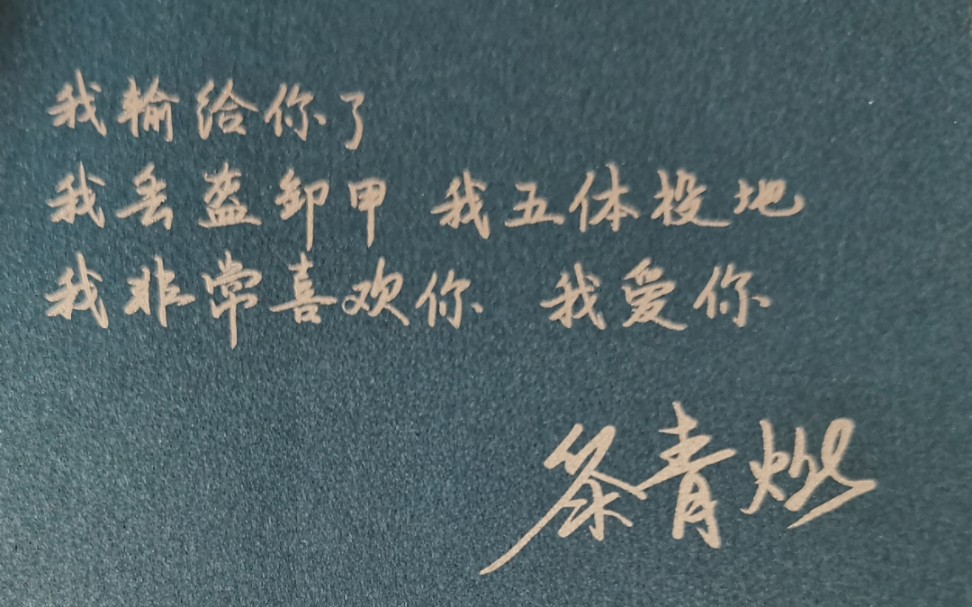 我输给你了
我丢盔卸甲 我五体投地
我非常喜欢你 我爱你
黎青燃